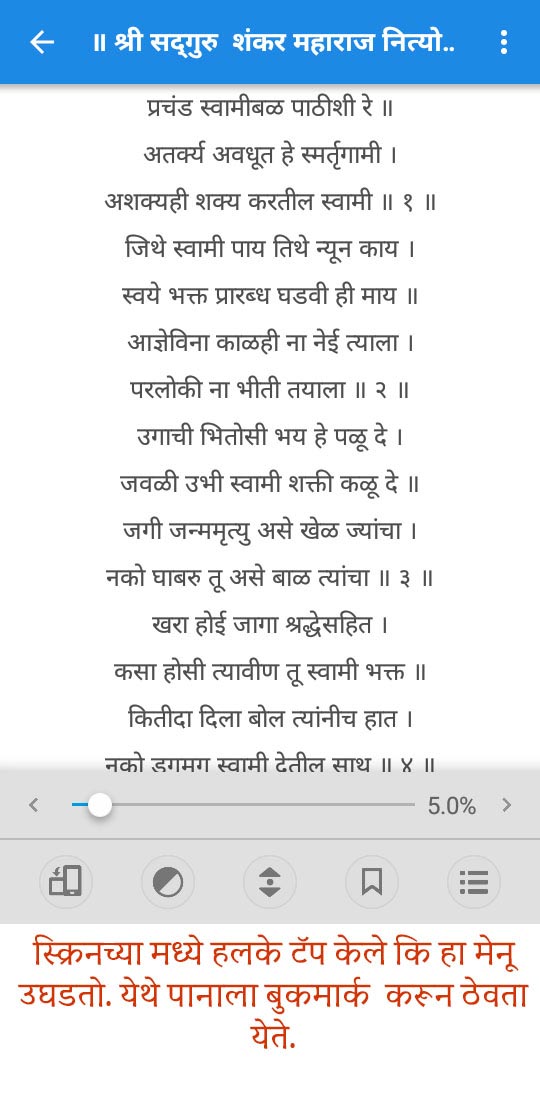 ॥ श्री सद्‌गुरु शंकर महाराज नित्यो..
प्रचंड स्वामीबळ पाठीशी रे ॥
अतर्क्य अवधूत हे स्मर्तृगामी ।
अशक्यही शक्य करतील स्वामी ॥ १ ॥
जिथे स्वामी पाय तिथे न्यून काय ।
स्वये भक्त प्रारब्ध घडवी ही माय ॥
आज्ञेविना काळही ना नेई त्याला ।
परलोकी ना भीती तयाला ॥ २ ॥
उगाची भितोसी भय हे पळू दे ।
जवळी उभी स्वामी शक्ती कळू दे ॥
जगी जन्ममृत्यु असे खेळ ज्यांचा ।
नको घाबरु तू असे बाळ त्यांचा ॥ ३ ॥
खरा होई जागा श्रद्धेसहित ।
कसा होसी त्यावीण तू स्वामी भक्त ॥
कितीदा दिला बोल त्यांनीच हात ।
नको डगमग स्वामी देतील साथ ॥ ४ ॥
5.0%
स्क्रिनच्या मध्ये हलके टॅप केले कि हा मेनू
उघडतो. येथे पानाला बुकमार्क करून ठेवता
येते.